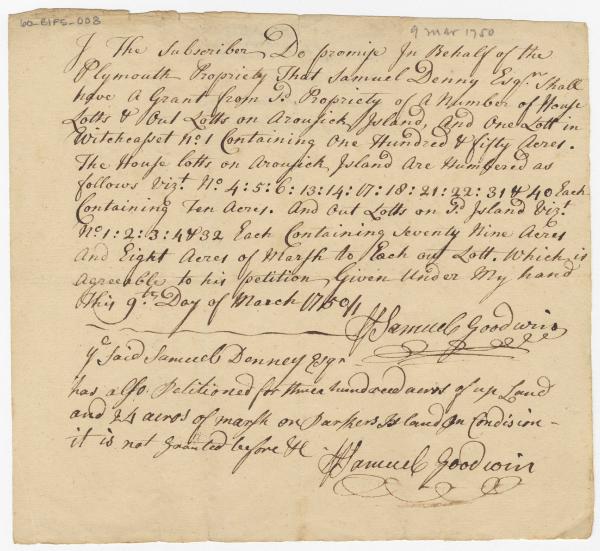 60-BIFS-008
9 Mar 1750
I The Subscriber Do promise In Behalf of the
Plymouth Propriety That Samuel Denny Esqr. Shall
have A Grant from Sd. Propriety of A Number of House
Lotts & Out Lotts on Arousick Island, And One Lott in
Witcheasset No. 1 Containing One Hundred & fifty Acres.
The House Lotts on Arousick Island Are Numbered as
follows Vizt. No. 4: 5: 6: 13: 14: 17: 18: 21: 22: 31 & 40 Each
Containing Ten Acres. And Out Lotts on Sd. Island Vizt.
No. 1: 2: 3: 4 & 32 Each Containing Seventy Nine Acres
And Eight Acres of Marsh to Each out Lott. Which is
agreeable to his petition Given Under My hand
This 9th. Day of March 1750/1
Samuel Goodwin
ye Said Samuel Denney Esqr
has also Petitioned for three hundred acres of up Land
and 24 acros of marsh on Parkers Island on Condision
it is not Granted before &c
Samuel Goodwin